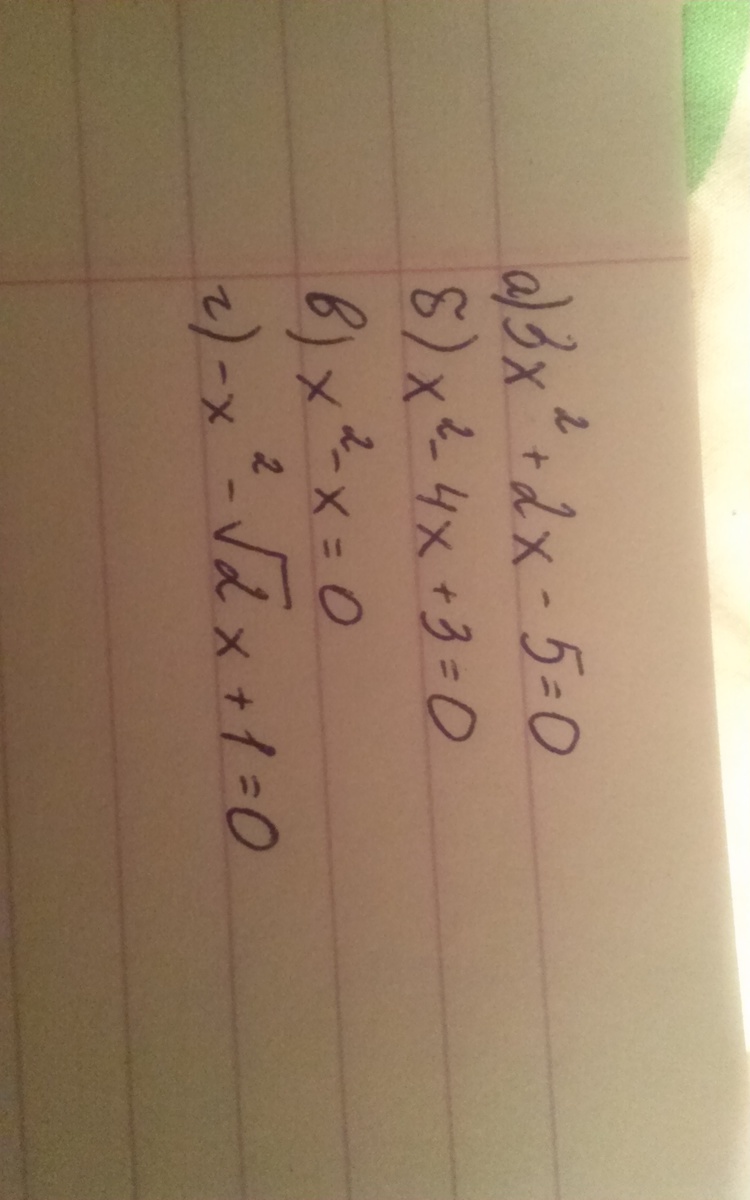 а) 3x² + 2x - 5 = 0
б) x² - 4x + 3 = 0
в) x² - x = 0
г) -x² - √2 x + 1 = 0